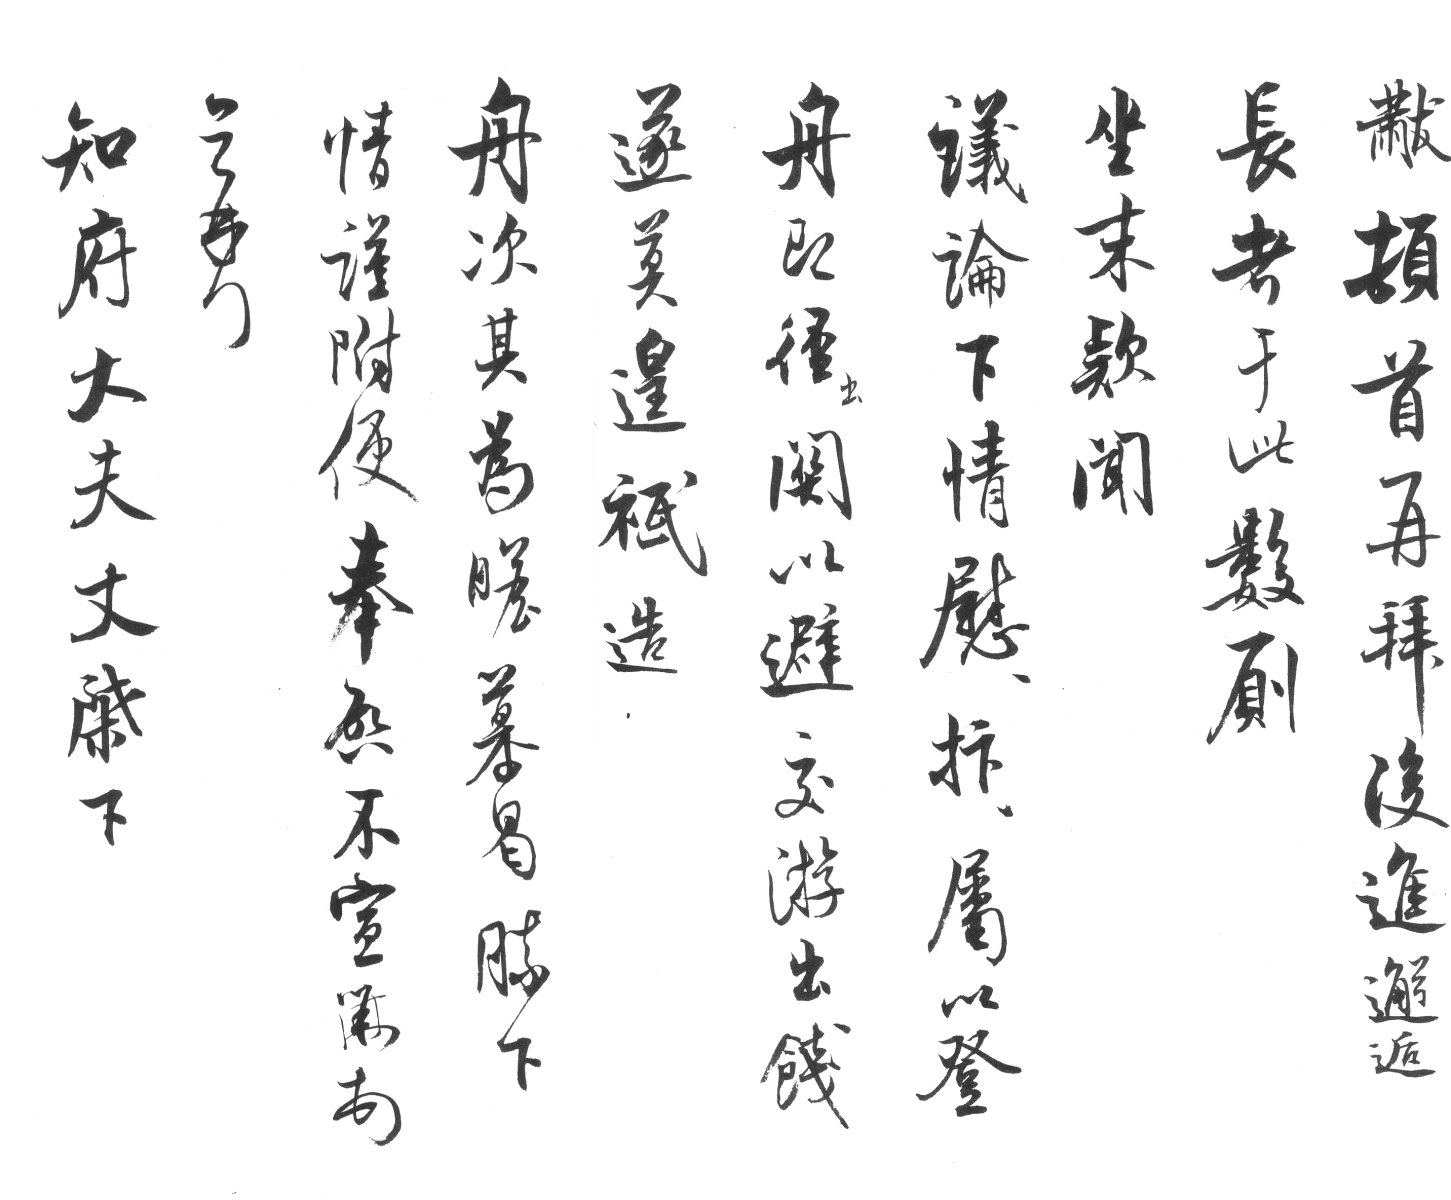 黻頓首再拜後進邂逅
長者于此數厠
坐末款聞
議論下情慰、抃、屬以登
舟即徑出關以避交游出餞
遂莫遑祗造
舟次其為瞻慕曷勝下
情謹附便奉啓不宣黻再
拜
知府大夫丈棨下